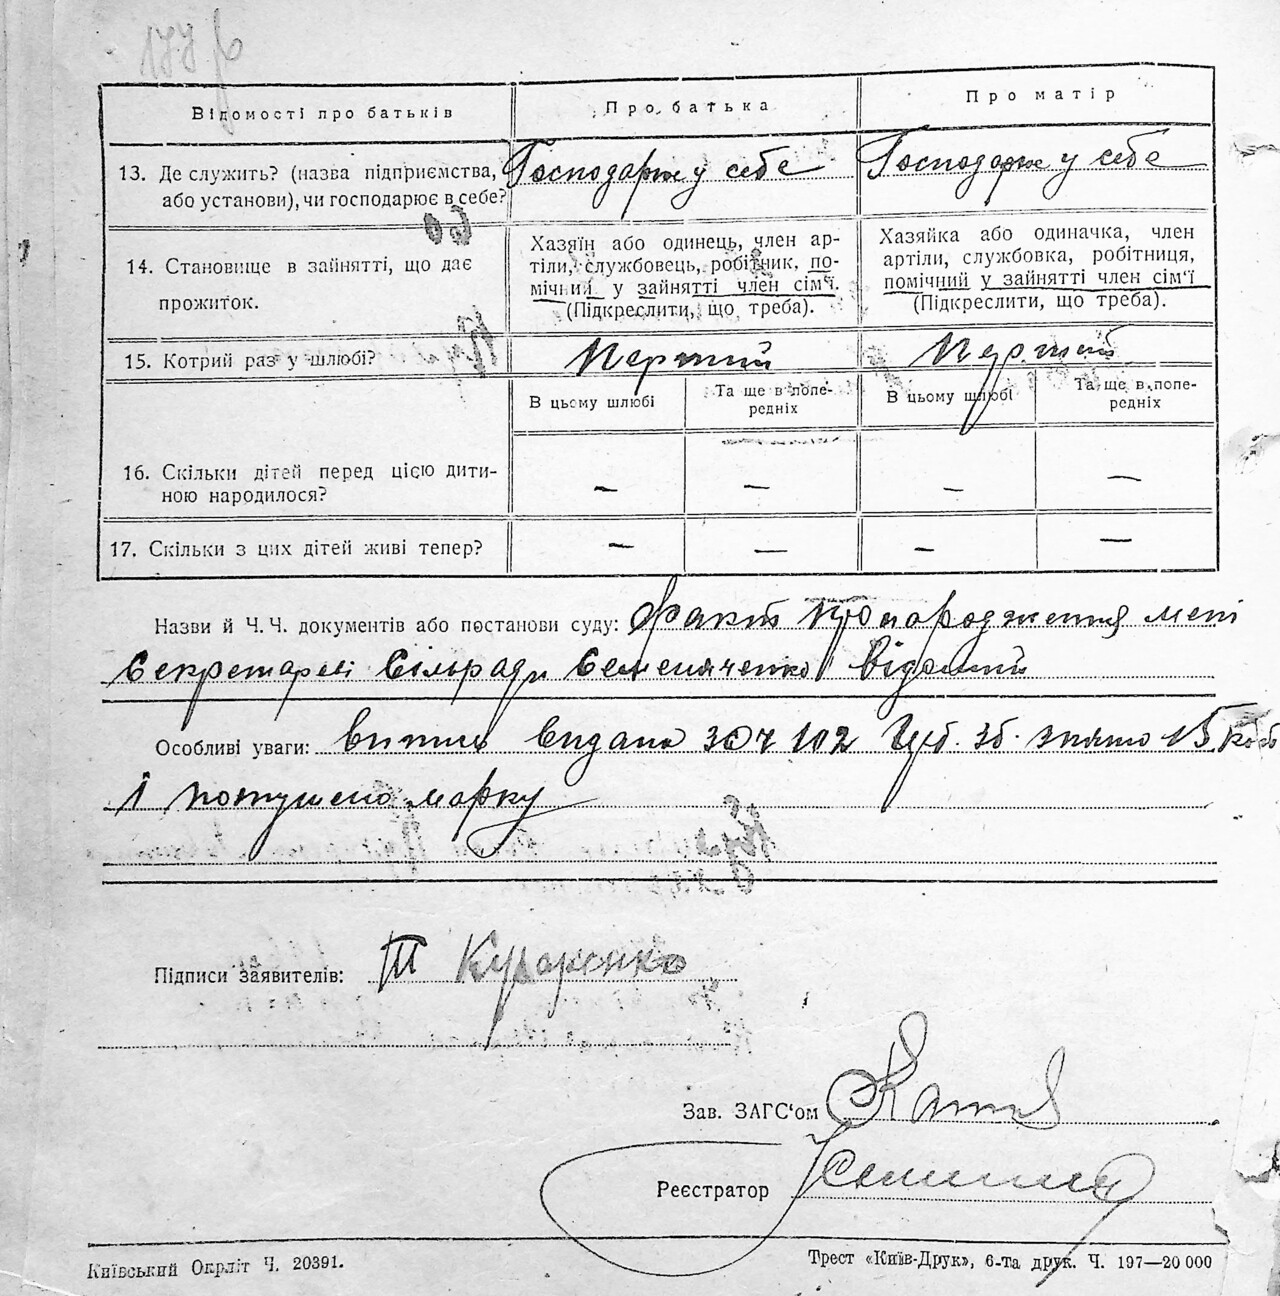 177
Відомості про батьків
Про батька
Про матір
13. Де служить? (назва підприємства, або установи), чи господарює в себе?
Господарює у себе
Господарює у себе
14. Становище в зайнятті, що дає прожиток.
Хазяїн або одинець, член артіли, службовець, робітник, помічний у зайнятті член сім'ї. (Підкреслити, що треба).
Хазяйка або одиначка, член артіли, службовка, робітниця, помічний у зайнятті член сім'ї (Підкреслити, що треба).
15. Котрий раз у шлюбі?
Перший
Перший
В цьому шлюбі
Та ще в попередніх
В цьому шлюбі
Та ще в попередніх
16. Скільки дітей перед цією дитиною народилося?
— — — —
17. Скільки з цих дітей живі тепер?
— — — —
Назви й Ч.Ч. документів або постанови суду: Факт про народження мені
Секретареві Сільради Семеняченко Відомий
Особливі уваги: витяг видано з
102 зб. знято 15 коп
і погушено марку
Підписи заявителів:
Зав. ЗАГС'ом
Реєстратор
Київський Окрліт Ч. 20391.
Трест «Київ-Друк», 6-та друк. Ч. 197—20 000